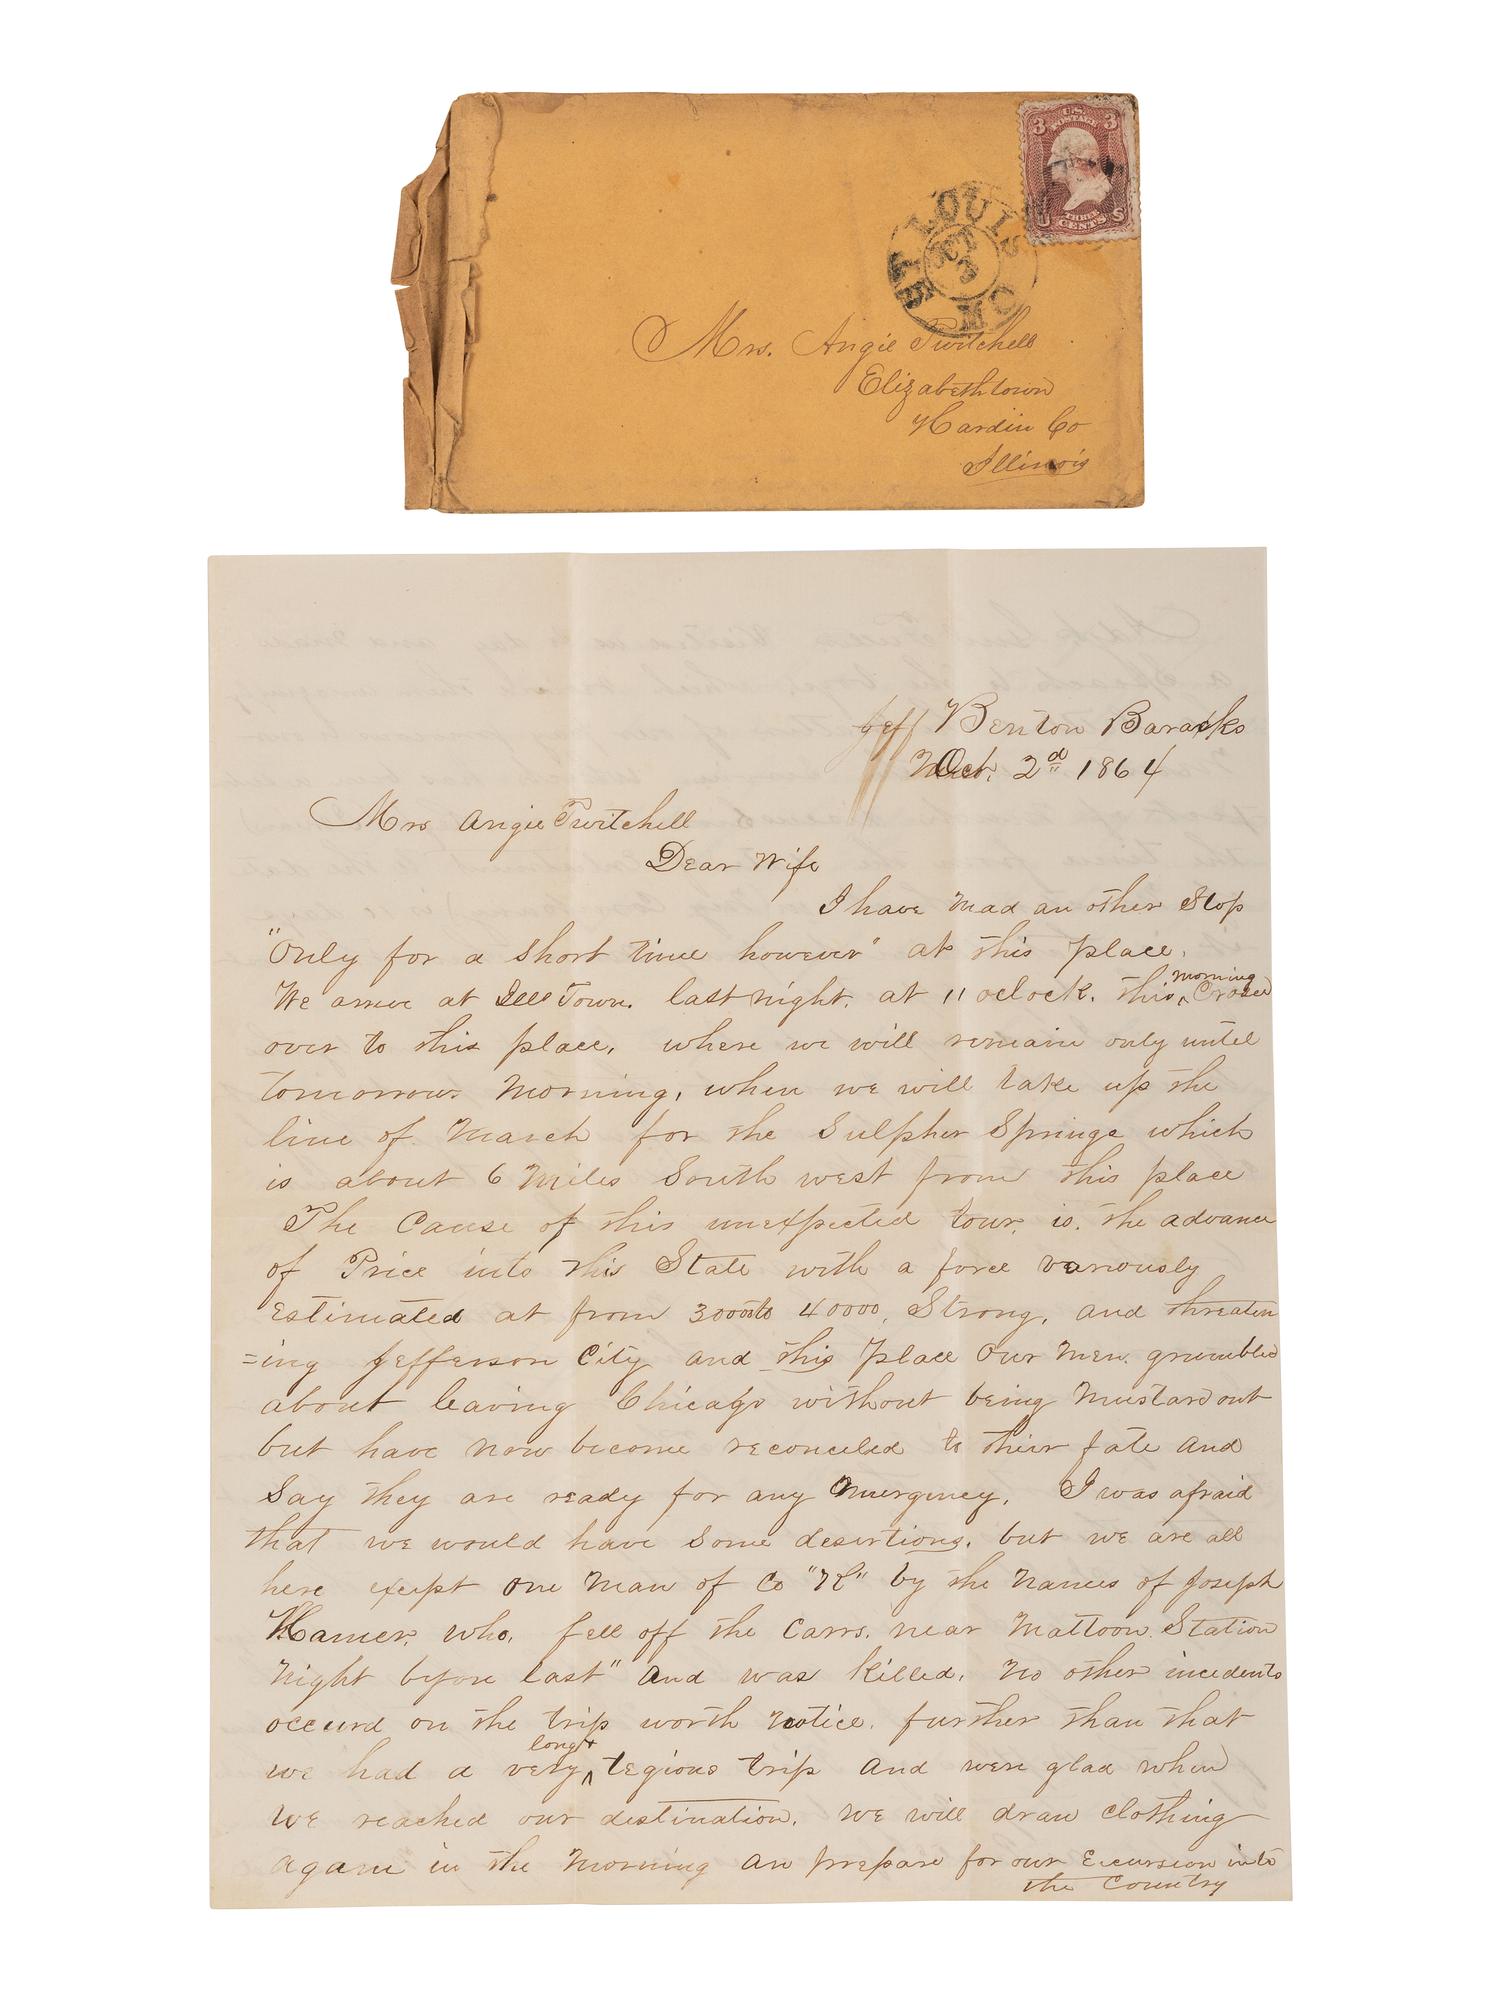 U.S. POSTAGE
3 3
U S
THREE CENTS
ST LOUIS MO
OCT
3
Mrs. Angie Twitchell
Elizabethtown
Hardin Co
Illinois
Jeff Benton Baracks
Oct. 2d 1864
Mrs Angie Twitchell
Dear Wife
I have mad an other Stop
"Only for a short time however" at this place.
We arrive at Ills Town. last night. at 11 oclock. this morning Crosed
over to this place. where we will remain only until
tomorrow Morning, when we will take up the
line of March for the Sulpher Springs which
is about 6 Miles South west from this place
The Cause of this unexpected tour. is. the advance
of Price into this State with a force variously
Estimated at from 30000 to 40000, Strong, and threaten
=ing Jefferson City and this Place Our Men. grumbled
about leaving Chicago without being Mustard out
but have now become reconciled to their fate and
Say they are ready for any Emergency. I was afraid
that we would have some desertions. but we are all
here except one Man of Co "K" by the Names of Joseph
Hamer. who. fell off the Carrs. near Mattoon Station
Night before last" and was Killed. No other incedents
occurd on the trip worth notice. further than that
we had a very long + tegious trip and were glad when
we reached our destination. we will draw clothing
again in the Morning an prepare for our Excursion into
the Country